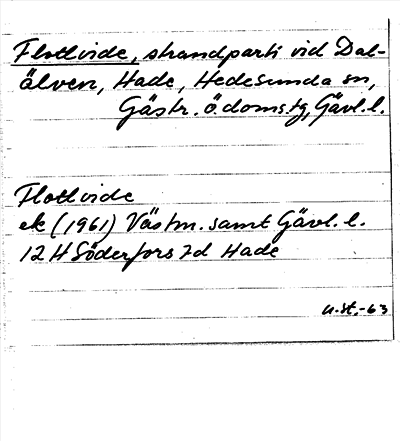 Flotlvide, strandparti vid Dal-
älven, Hade, Hedesunda sn,
Gästr. ö. doms.tg, Gävl. l.
Flotlvide
ek (1961) Västm. samt Gävl. l.
12 H Söderfors 7d Hade
u.st.-63